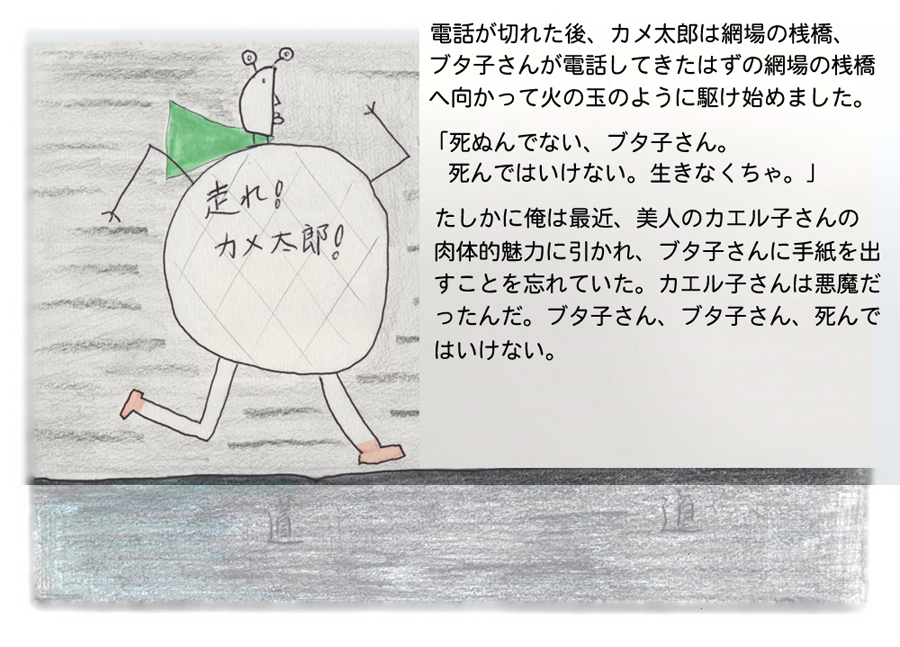 電話が切れた後、カメ太郎は網場の桟橋、
ブタ子さんが電話してきたはずの網場の桟橋
へ向かって火の玉のように駆け始めました。
「死ぬんでない、ブタ子さん。
死んではいけない。生きなくちゃ。」
たしかに俺は最近、美人のカエル子さんの
肉体的魅力に引かれ、ブタ子さんに手紙を出
すことを忘れていた。カエル子さんは悪魔だ
ったんだ。ブタ子さん、ブタ子さん、死んで
はいけない。
走れ!
カメ太郎!
道
道